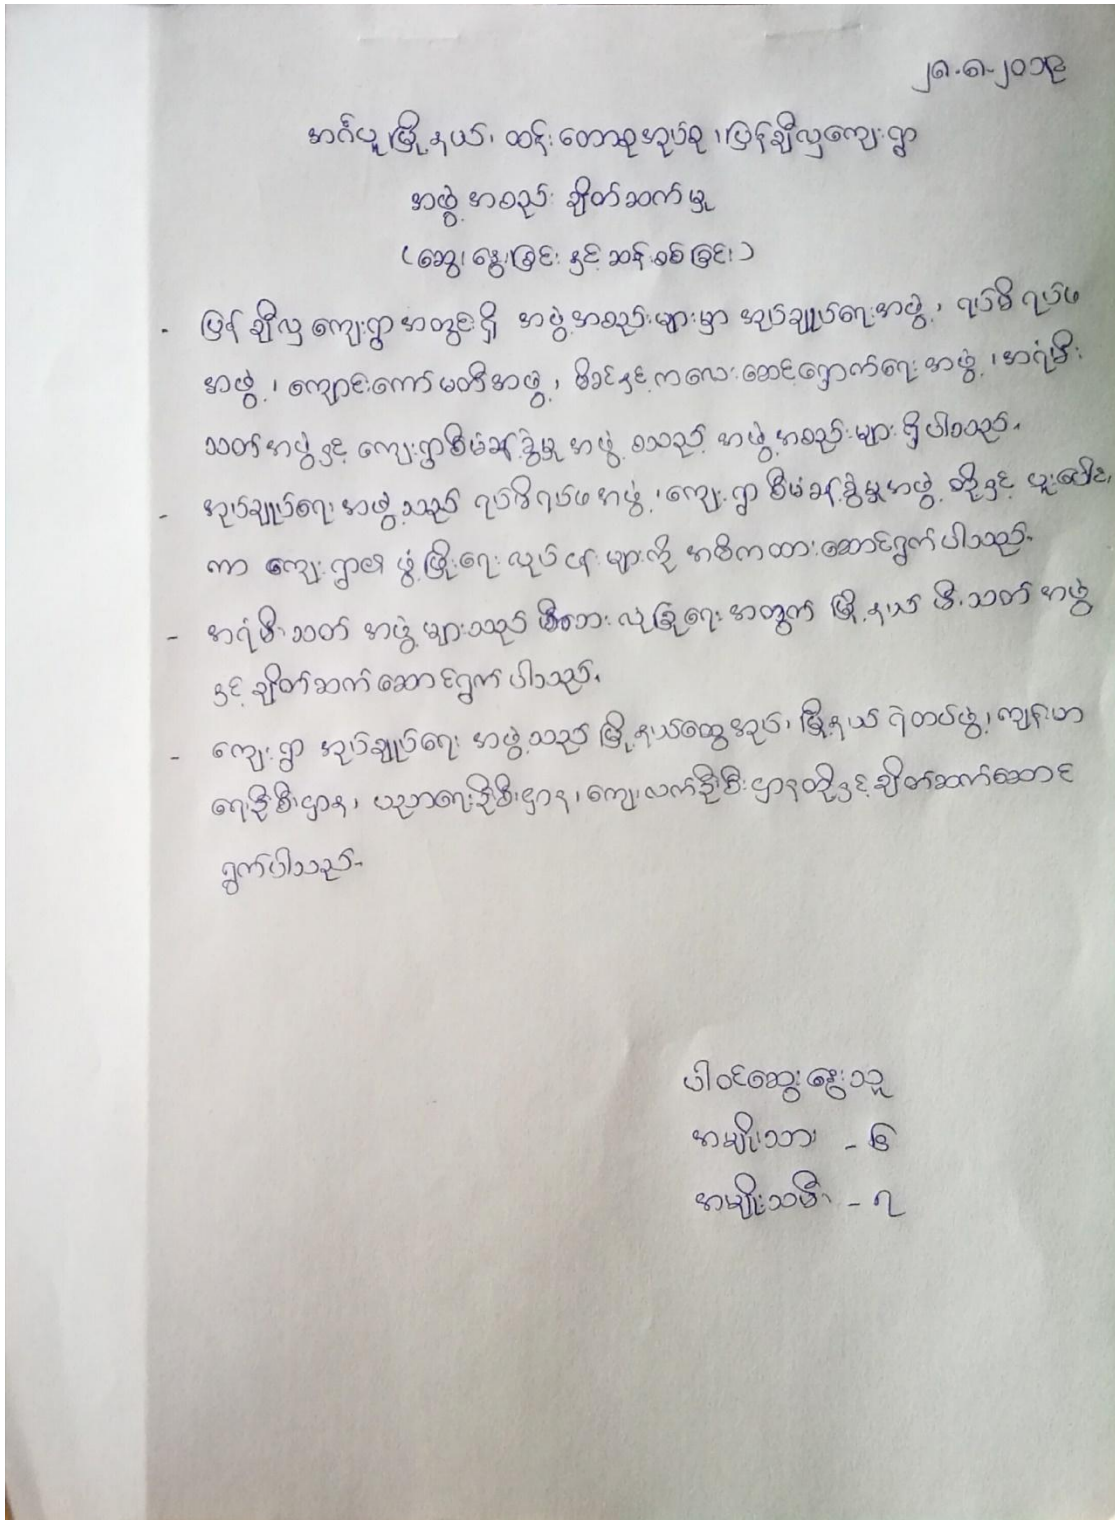 ၂၈.၈.၂၀၁၉
အင်္ဂပူမြို့နယ်၊ ထန်းတောအုပ်စု၊ ပြန်ချီလှကျေးရွာ
အဖွဲ့အစည်း ချိတ်ဆက်မှု
(ဆွေးနွေးခြင်း နှင့် ဆန်းစစ်ခြင်း)
- ပြန်ချီလှကျေးရွာအတွင်းရှိ အဖွဲ့အစည်းများမှာ အုပ်ချုပ်ရေးအဖွဲ့၊ ရပ်မိရပ်ဖ
အဖွဲ့၊ ကျောင်းကော်မတီအဖွဲ့၊ မိခင်နှင့်ကလေးစောင့်ရှောက်ရေးအဖွဲ့၊ အရံမီး
သတ်အဖွဲ့နှင့် ကျေးရွာစီမံခန့်ခွဲမှုအဖွဲ့ စသည့် အဖွဲ့အစည်းများရှိပါသည်။
- အုပ်ချုပ်ရေးအဖွဲ့သည် ရပ်မိရပ်ဖအဖွဲ့၊ ကျေးရွာစီမံခန့်ခွဲမှုအဖွဲ့ တို့နှင့် ပူးပေါင်း
ကာ ကျေးရွာ၏ ဖွံ့ဖြိုးရေးလုပ်ငန်းများကို အဓိကထားဆောင်ရွက်ပါသည်။
- အရံမီးသတ်အဖွဲ့များသည် မီးဘေးလုံခြုံရေးအတွက် မြို့နယ်မီးသတ်အဖွဲ့
နှင့် ချိတ်ဆက်ဆောင်ရွက်ပါသည်။
- ကျေးရွာ အုပ်ချုပ်ရေးအဖွဲ့သည် မြို့နယ်ထွေအုပ်၊ မြို့နယ်ရဲတပ်ဖွဲ့၊ ကျန်းမာ
ရေးဦးစီးဌာန၊ ပညာရေးဦးစီးဌာန၊ ကျေးလက်ဦးစီးဌာနတို့နှင့် ချိတ်ဆက်ဆောင်
ရွက်ပါသည်။
ပါဝင်ဆွေးနွေးသူ
အမျိုးသား - ၆
အမျိုးသမီး - ၇